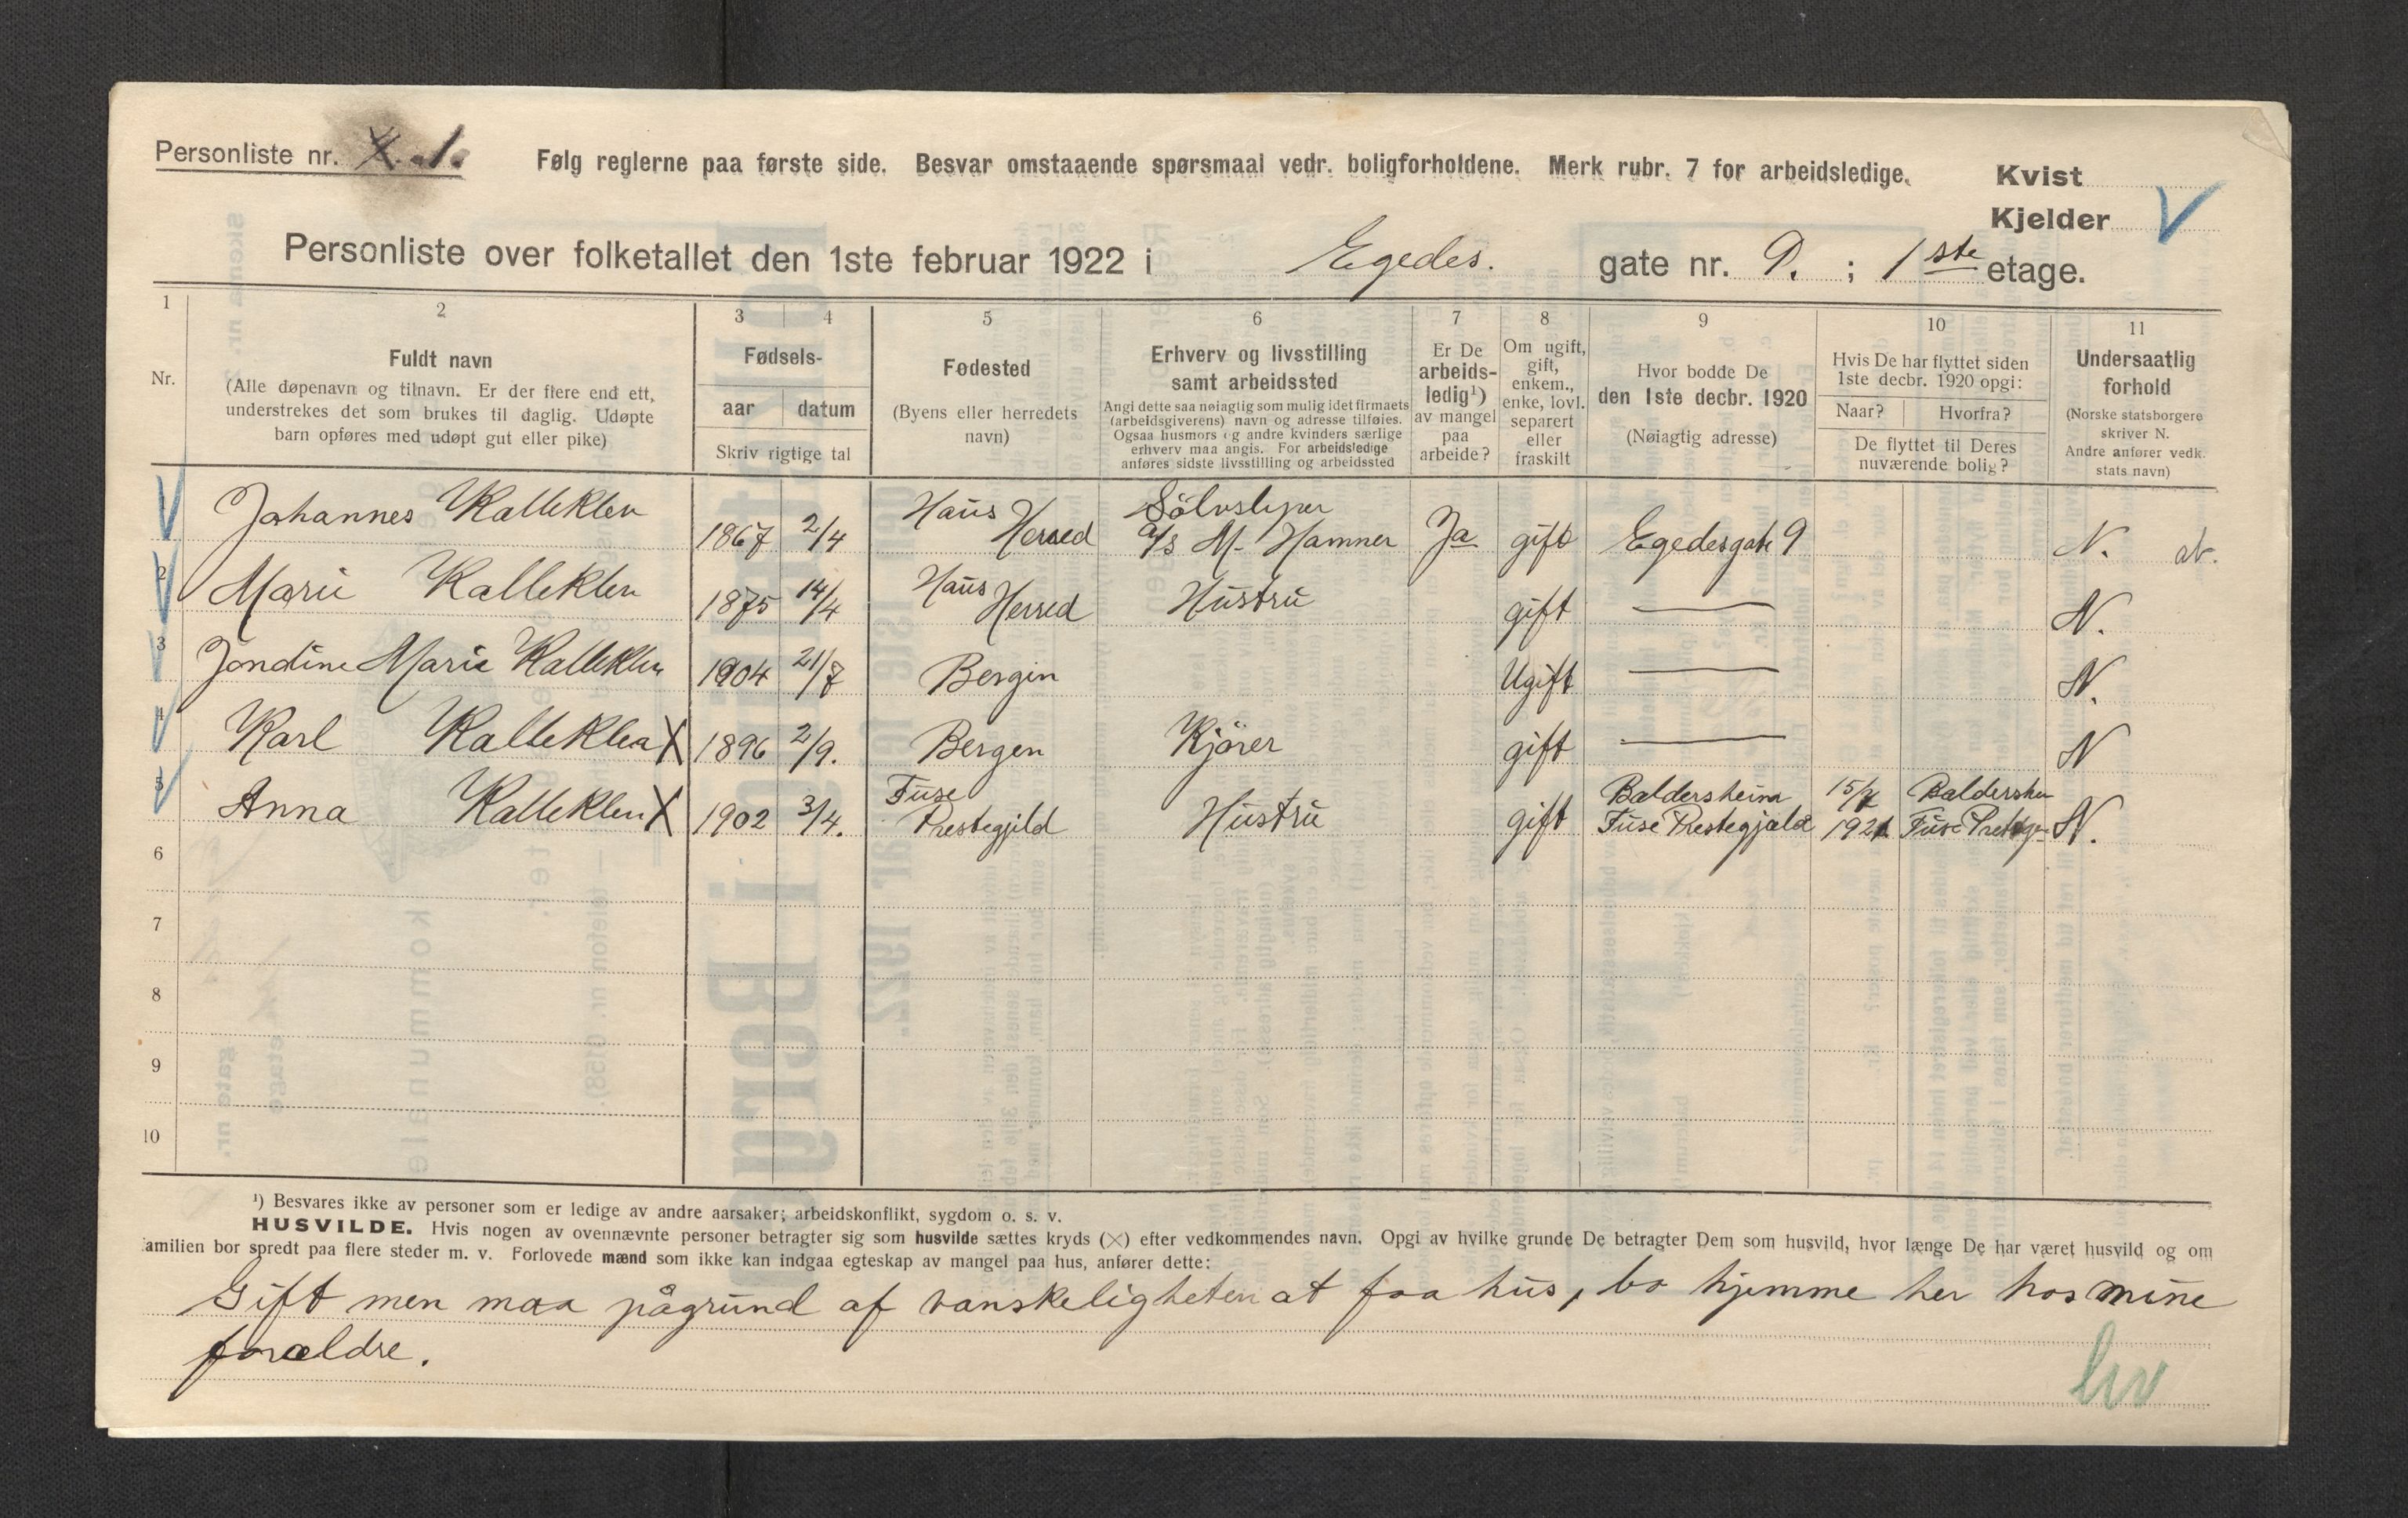 Personliste nr. 1.
Følg reglerne paa første side. Besvar omstaaende spørsmaal vedr. boligforholdene. Merk rubr. 7 for arbeidsledige.
Kvist
Kjelder
Personliste over folketallet den 1ste februar 1922 i Egedes. gate nr. 9. ; 1ste etage.
1 2 3 4 5 6 7 8 9 10 11
Nr.
Fuldt navn
(Alle døpenavn og tilnavn. Er der flere end ett,
understrekes det som brukes til daglig. Udøpte
barn opføres med udøpt gut eller pike)
Fødsels-
aar datum
Skriv rigtige tal
Fødested
(Byens eller herredets
navn)
Erhverv og livsstilling
samt arbeidssted
Angi dette saa nøiagtig som mulig idet firmaets
(arbeidsgiverens) navn og adresse tilføies.
Ogsaa husmors og andre kvinders særlige
erhverv maa angis. For arbeidsledige
anføres sidste livsstilling og arbeidssted
Er De
arbeids-
ledig¹)
av mangel
paa
arbeide?
Om ugift,
gift,
enkem.,
enke, lovl.
separert
eller
fraskilt
Hvor bodde De
den 1ste decbr. 1920
(Nøiagtig adresse)
Hvis De har flyttet siden
1ste decbr. 1920 opgi:
Naar? Hvorfra?
De flyttet til Deres
nuværende bolig?
Undersaatlig
forhold
(Norske statsborgere
skriver N.
Andre anfører vedk.
stats navn)
Johannes Kalleklev 1867 2/4 Haus Herred Sölvsliper a/s M. Hamner Ja gift Egedesgate 9 N.
2 Marie Kalleklev 1875 14/4 Haus Herred Hustru gift — N.
3 Jondine Marie Kalleklev 1904 21/7 Bergen Ugift — N.
4 Karl Kalleklev X 1896 2/9. Bergen Kjörer gift — N
5 Anna Kalleklev X 1902 3/4. Fuse Prestegjeld Hustru gift Baldersheim Fuse Prestegjæld 1921 N.
6
7
8
9
10
¹) Besvares ikke av personer som er ledige av andre aarsaker; arbeidskonflikt, sygdom o. s. v.
HUSVILDE. Hvis nogen av ovennævnte personer betragter sig som husvilde sættes kryds (×) efter vedkommendes navn. Opgi av hvilke grunde De betragter Dem som husvild, hvor længe De har været husvild og om
familien bor spredt paa flere steder m. v. Forlovede mænd som ikke kan indgaa egteskap av mangel paa hus, anfører dette:
Gift men maa pågrund af vanskeligheten at faa hus, bo hjemme her hos mine
forældre.